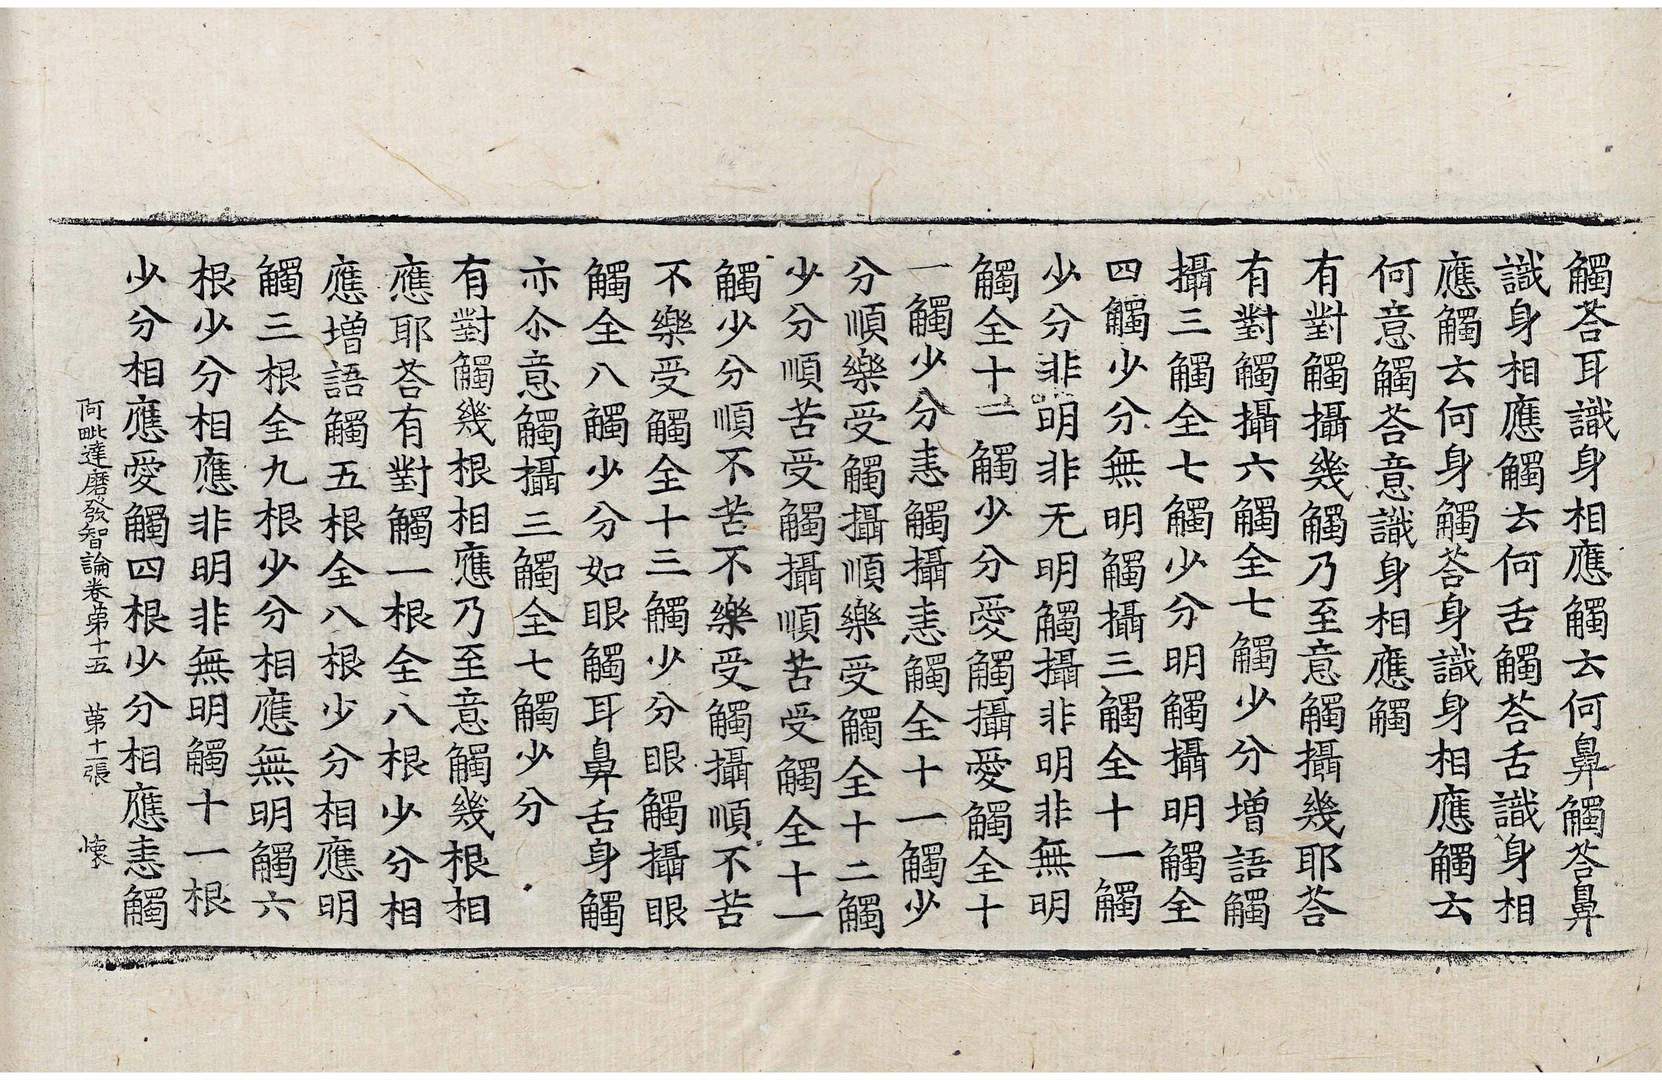 觸荅耳識身相應觸云何鼻觸荅鼻
識身相應觸云何舌觸荅舌識身相
應觸云何身觸荅身識身相應觸云
何意觸荅意識身相應觸
有對觸攝幾觸乃至意觸攝幾耶荅
有對觸攝六觸全七觸少分增語觸
攝三觸全七觸少分明觸攝明觸全
四觸少分無明觸攝三觸全十一觸
少分非明非无明觸攝非明非無明
觸全十一觸少分愛觸攝愛觸全十
一觸少分恚觸攝恚觸全十一觸少
分順樂受觸攝順樂受觸全十二觸
少分順苦受觸攝順苦受觸全十一
觸少分順不苦不樂受觸攝順不苦
不樂受觸全十三觸少分眼觸攝眼
觸全八觸少分如眼觸耳鼻舌身觸
亦尒意觸攝三觸全七觸少分
有對觸幾根相應乃至意觸幾根相
應耶荅有對觸一根全八根少分相
應增語觸五根全八根少分相應明
觸三根全九根少分相應無明觸六
根少分相應非明非無明觸十一根
少分相應愛觸四根少分相應恚觸
阿毗達磨發智論卷第十五 第十一張 懷